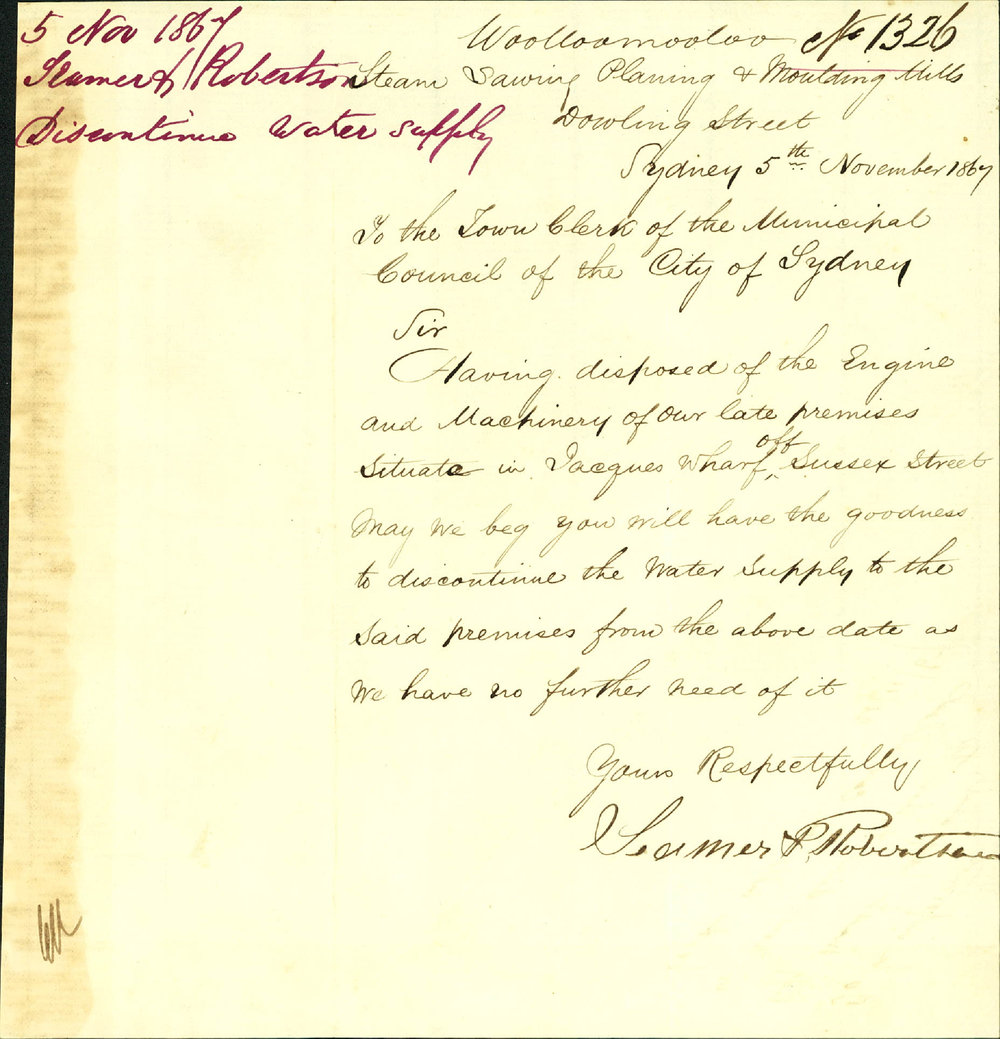 5 Nov 1867
Seamer & Robertson
Discontinue Water supply
No 1326
Woolloomooloo
Steam Sawing Planing & Moulding Mills
Dowling Street
Sydney 5th November 1867
To the Town Clerk of the Municipal
Council of the City of Sydney
Sir
Having disposed of the Engine
and Machinery of our late premises
Situate in Jacques Wharf off Sussex Street
May We beg you will have the goodness
to discontinue the Water Supply to the
Said premises from the above date as
We have no further need of it
Yours Respectfully
Seamer & Robertson